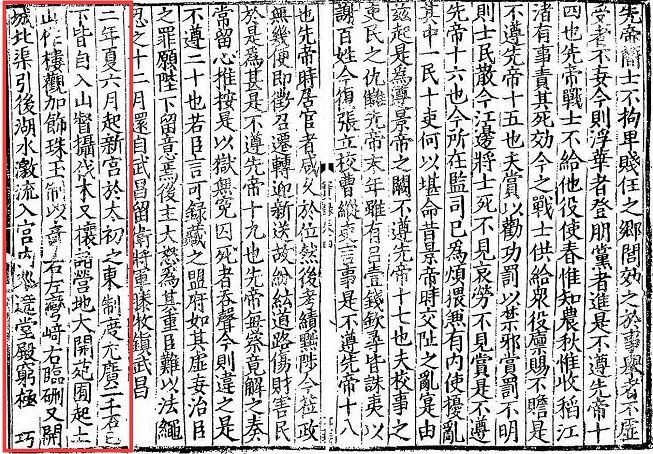 先帝簡士不拘卑賤任之鄉閭效之於事舉者不虛
受者不妄今則浮華者登朋黨者進是不遵先帝十
四也先帝戰士不給他役使春惟知農秋惟收稻江
渚有事責其死効今之戰士供給衆役廩賜不贍是
不遵先帝十五也夫賞以勸功罰以禁邪賞罰不明
則士民散今江邊將士死不見哀勞不見賞是不遵
先帝十六也今所在監司已為煩猥兼有内使擾亂
其中一民十吏何以堪命昔景帝時交阯之亂寔由
茲起是為遵景帝之闕不遵先帝十七也夫校事之
吏民之仇讎先帝末年雖有吕壹錢欽尋皆誅夷以
謝百姓今復張立校曹縱吏言事是不遵先帝十八
也先帝時居官者咸久於位然後考績黜陟今莅政
無幾便即徵召遷轉迎新送故紛紜道路傷財害民
於是為甚是不遵先帝十九也先帝每察竟解之奏
常留心推按是以獄無寃囚死者吞聲今則違之是
不遵二十也若臣言可録藏之盟府如其虛妄治臣
之罪願陛下留意焉後主大怒為其重臣難以法繩
忍之十二月還自武昌留衛將軍滕牧鎮武昌
二年夏六月起新宫於太初之東制度尤廣二千石已
下皆自入山督攝伐木又攘諸營地大開苑囿起土
山作樓觀加飾珠玉制以奇石左彎崎右臨硎又開
城北渠引後湖水激流入宫内巡遶堂殿窮極 巧